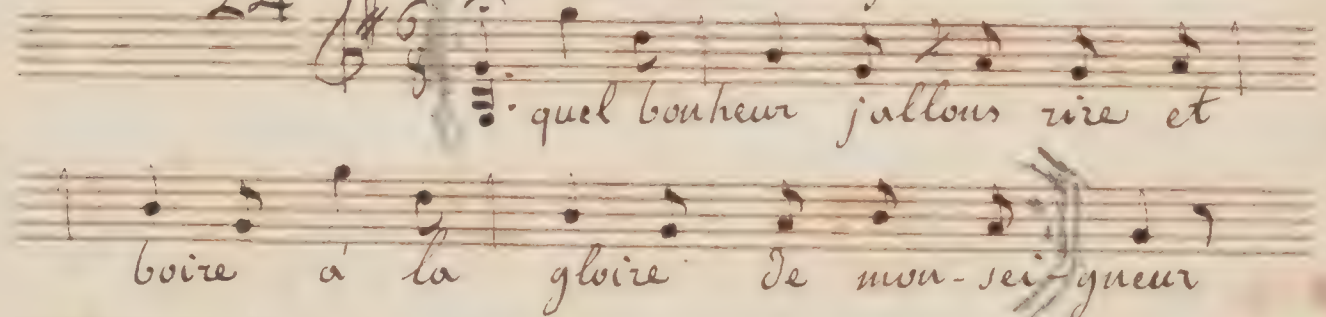 24
quel bonheur jallons rire et
boire a la gloire de mon-sei-gneur